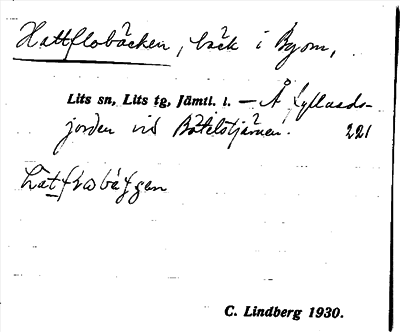 Hattflobäcken, bäck i Byom,
Lits sn, Lits tg, Jämtl. l. – Å Gyllands-
jorden vid Båtelstjärnen. 221
C. Lindberg 1930.